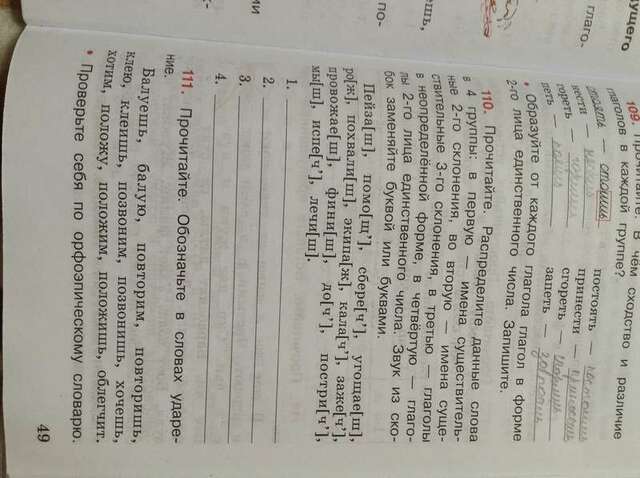 109.
глаголов в каждой группе?
В чём сходство и различие
стоять — стоишь
постоять —
нести —
принести —
гореть —
сгореть —
петь —
запеть —
• Образуйте от каждого глагола глагол в форме
2-го лица единственного числа. Запишите.
110. Прочитайте. Распределите данные слова
в 4 группы: в первую — имена существитель-
ные 2-го склонения, во вторую — имена суще-
ствительные 3-го склонения, в третью — глаголы
в неопределённой форме, в четвёртую — глаго-
лы 2-го лица единственного числа. Звук из ско-
бок заменяйте буквой или буквами.
Пейза[ш], помо[щ’], сбере[ч’], угощае[ш],
ро[ж], похвали[ш], экипа[ж], кала[ч’], заже[ч’],
провожае[ш], фини[ш], до[ч’], постри[ч’],
мы[ш], испе[ч’], лечи[ш].
1.
2.
3.
4.
111. Прочитайте. Обозначьте в словах ударе-
ние.
Балуешь, балую, повторим, повторишь,
клею, клеишь, позвоним, позвонишь, хочешь,
хотим, положу, положим, положишь, облегчит.
• Проверьте себя по орфоэпическому словарю.
49